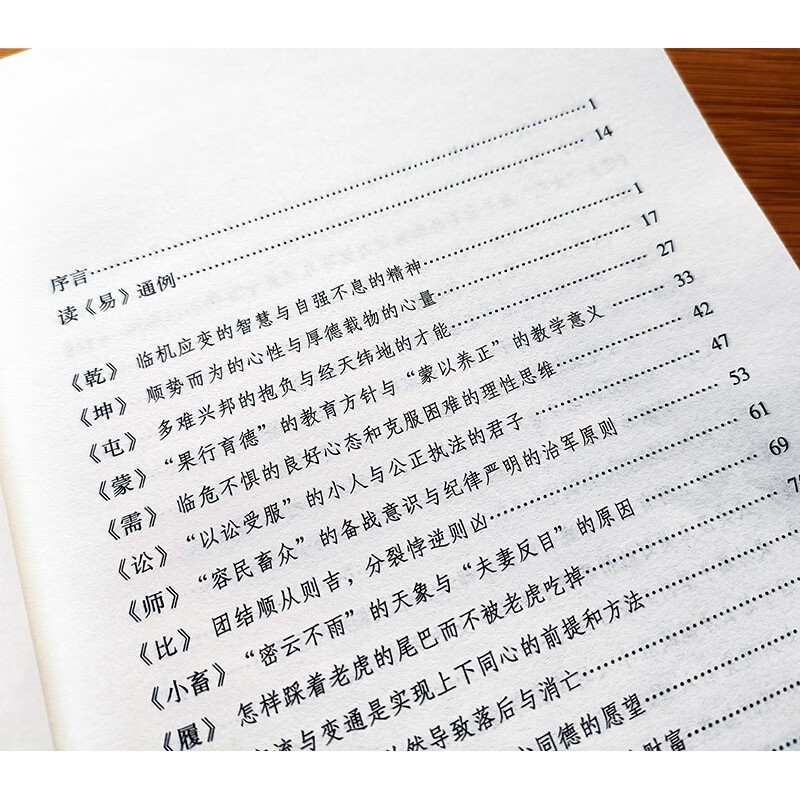 序言……1
读《易》通例……14
《乾》 临机应变的智慧与自强不息的精神……1
《坤》 顺势而为的心性与厚德载物的心量……17
《屯》 多难兴邦的抱负与经天纬地的才能……27
《蒙》 “果行育德”的教育方针与“蒙以养正”的教学意义……33
《需》 临危不惧的良好心态和克服困难的理性思维……42
《讼》 “以讼受服”的小人与公正执法的君子……47
《师》 “容民畜众”的备战意识与纪律严明的治军原则……53
《比》 团结顺从则吉，分裂悖逆则凶……61
《小畜》 “密云不雨”的天象与“夫妻反目”的原因……69
《履》 怎样踩着老虎的尾巴而不被老虎吃掉……7
流与变通是实现上下同心的前提和方法……
然导致落后与消亡……
同德的愿望……
财富……